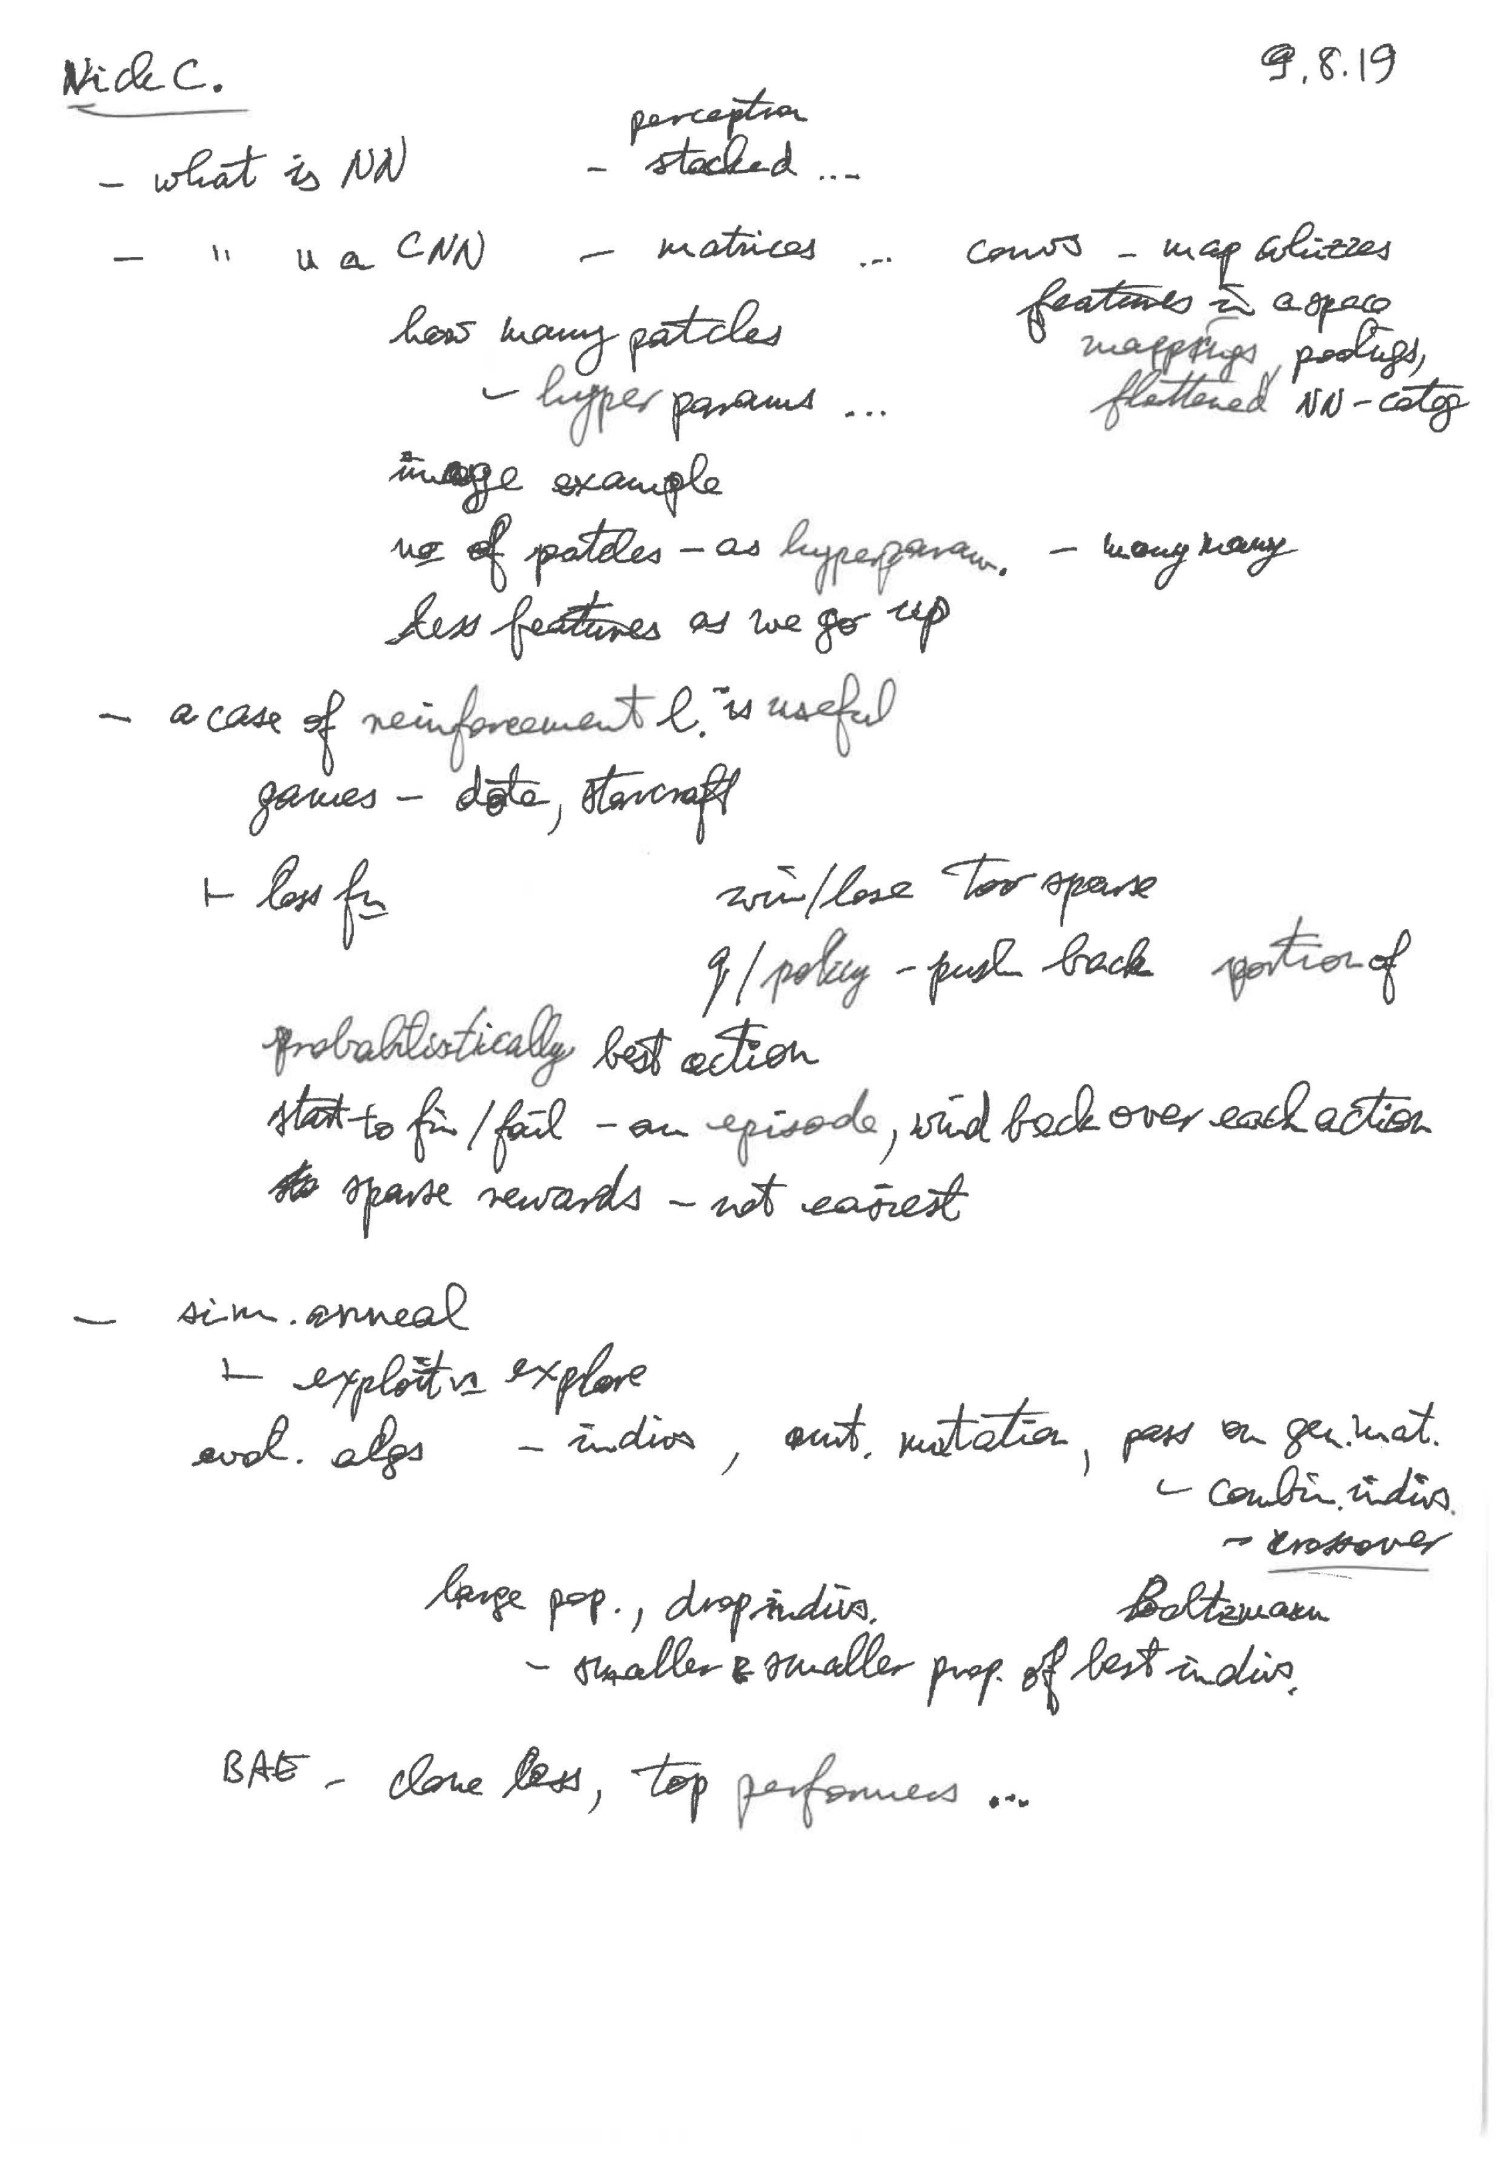 Nick C. 9.8.19
perceptron
- what is NN - stacked ...
- " " a CNN - matrices ... convs - map
features in a space
how many patches mappings, poolings,
- hyper params ... flattened, NN-categ
image example
no of patches - as hyperparam. - many many
less features as we go up
- a case of reinforcement l. is useful
games - dota, starcraft
- loss fn win/lose too sparse
q/policy - push back portion of
probabilistically best action
start to fin/fail - an episode, wind back over each action
sparse rewards - not easiest
- sim. anneal
- exploit vs explore
evol. algs - indivs, mut. mutation, pass on gen. mat.
- combin. indivs.
- crossover
large pop., drop indivs. Boltzmann
- smaller & smaller prop. of best indivs.
BAE - clone less, top performers ...